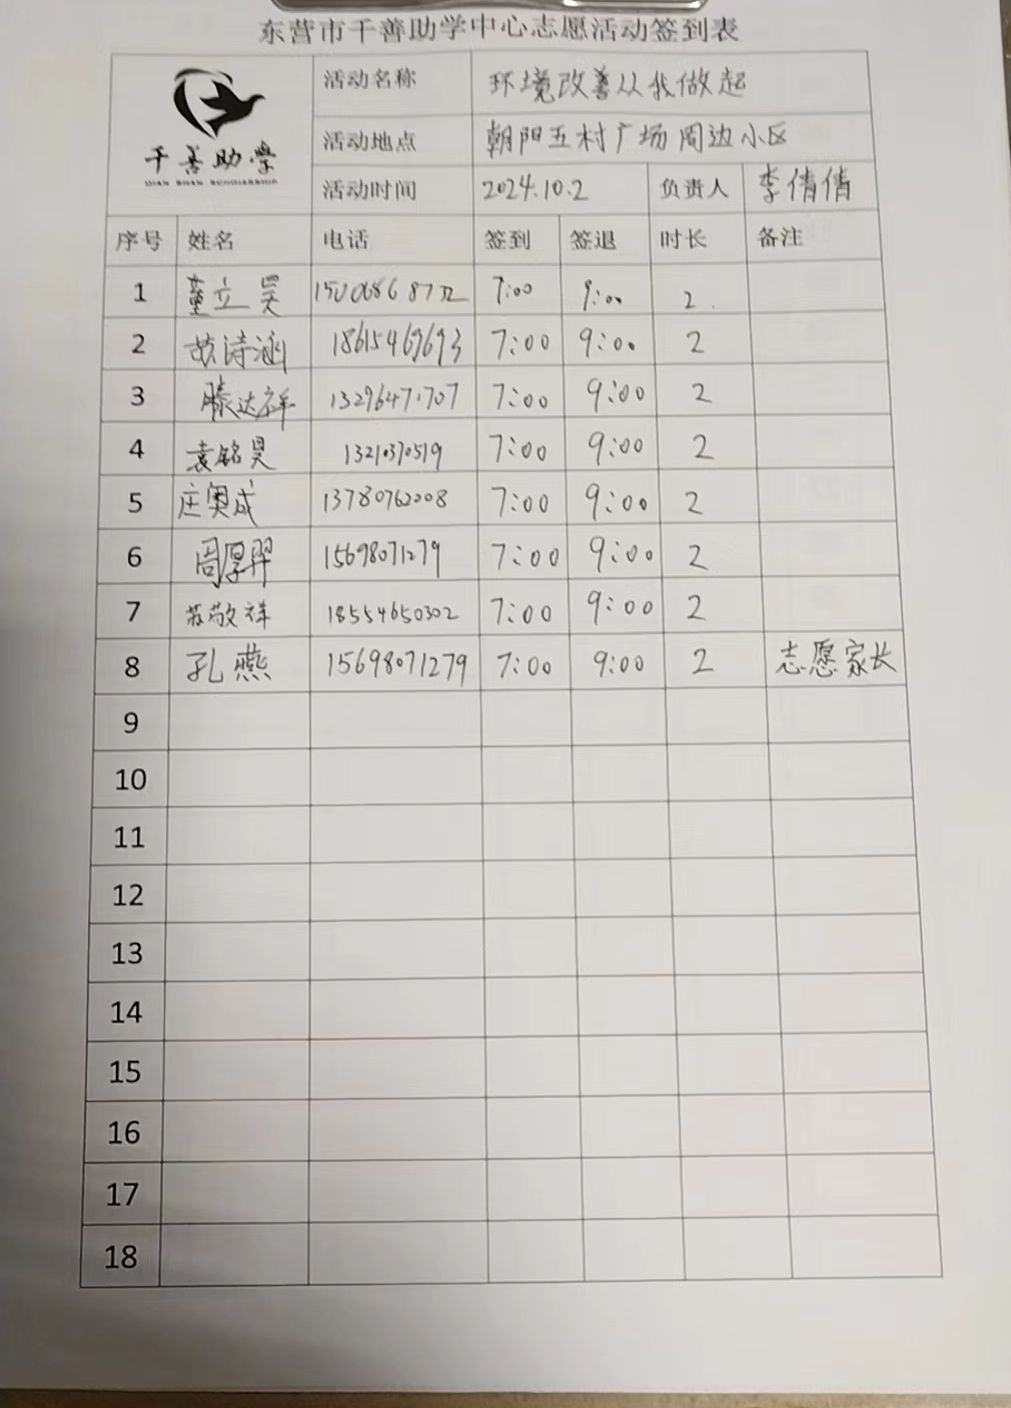 东营市千善助学中心志愿活动签到表
千善助学
QIAN SHAN SCHOLARSHIP
活动名称 环境改善从我做起
活动地点 朝阳五村广场周边小区
活动时间 2024.10.2 负责人 李倩倩
序号 姓名 电话 签到 签退 时长 备注
1 董立昊 7:00 9:00 2
2 诗涵 18615469693 7:00 9:00 2
3 滕达祥 13296471707 7:00 9:00 2
4 袁铭昊 1321070519 7:00 9:00 2
5 庄奥成 13780762008 7:00 9:00 2
6 周厚羿 15698071279 7:00 9:00 2
7 苏敬祥 18554650302 7:00 9:00 2
8 孔燕 15698071279 7:00 9:00 2 志愿家长
9
10
11
12
13
14
15
16
17
18